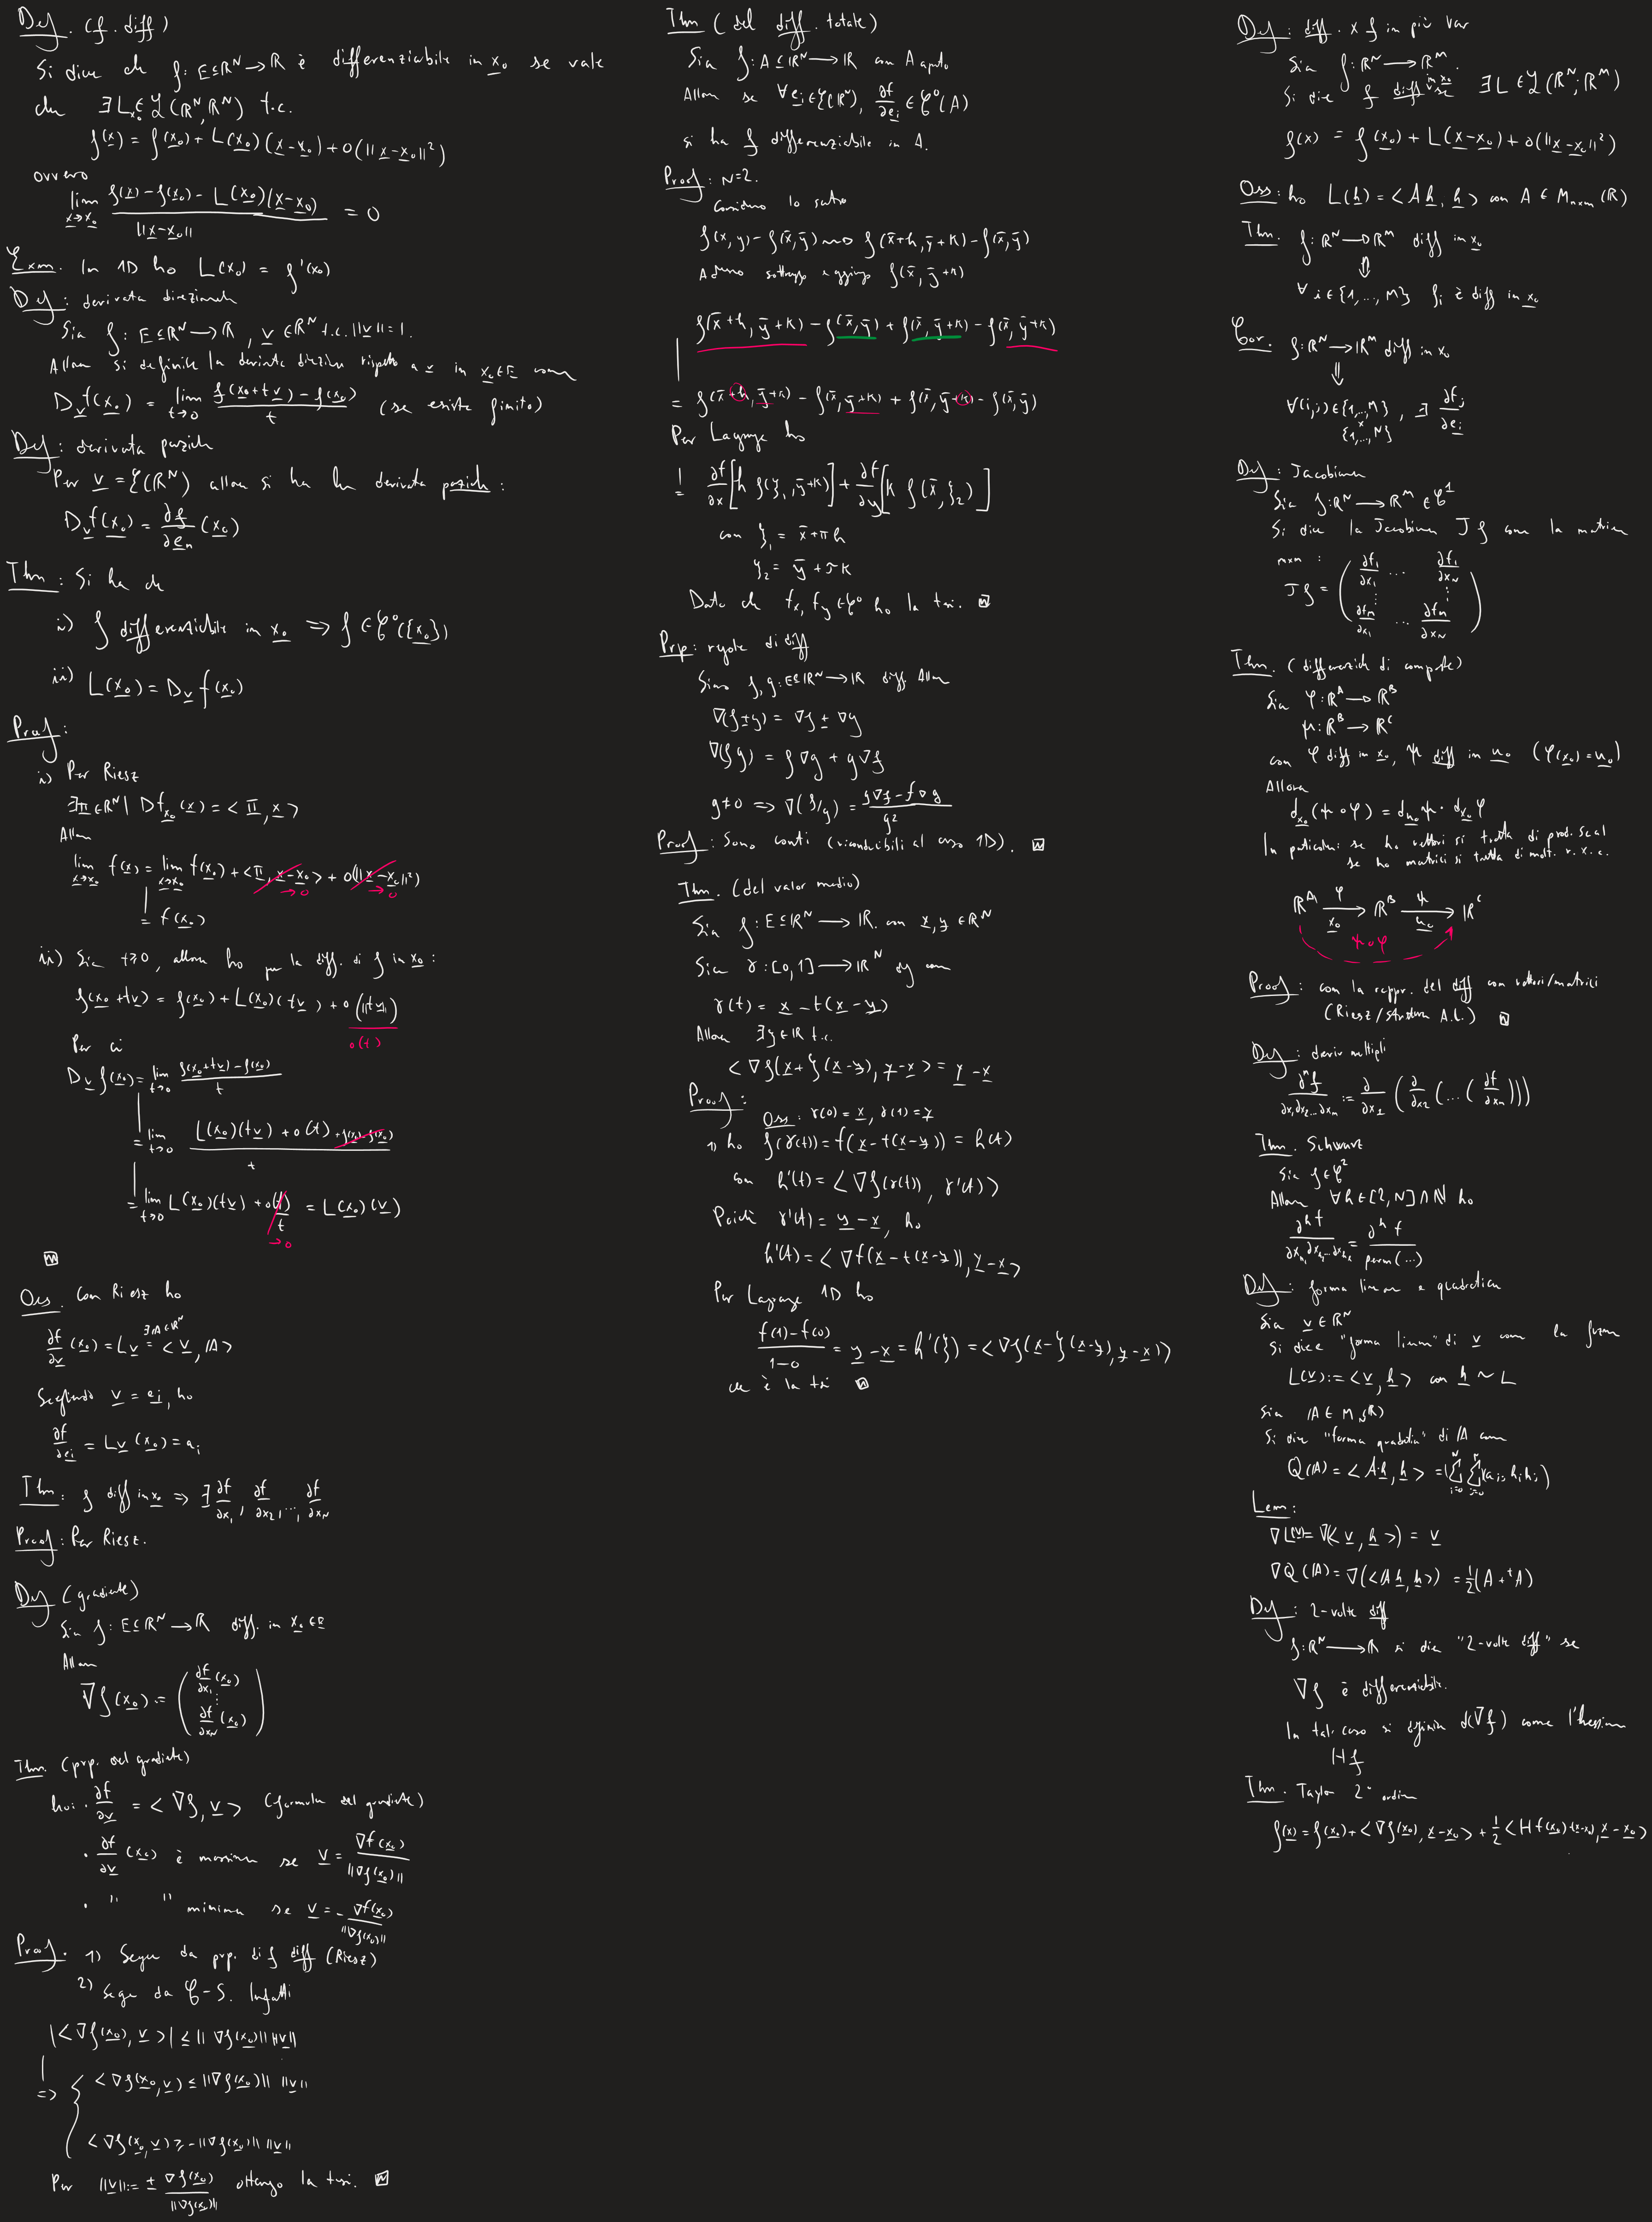 Def. (f. diff)
Si dice che f: E⊆ℝᴺ → ℝ è differenziabile in x₀ se vale
che ∃ L_x₀ ∈ ℒ(ℝᴺ, ℝᴺ) t.c.
f(x) = f(x₀) + L(x₀)(x-x₀) + o(||x-x₀||²)
ovvero
lim x→x₀ (f(x) - f(x₀) - L(x₀)(x-x₀)) / ||x-x₀|| = 0
Exm. In 1D ho L(x₀) = f'(x₀)
Def: derivata direzionale
Sia f: E⊆ℝᴺ → ℝ, v ∈ ℝᴺ t.c. ||v||=1.
Allora si definisce la derivata direzione rispetto a v in x₀∈E come
D_v f(x₀) = lim t→0 (f(x₀+tv) - f(x₀)) / t (se esiste finito)
Def: derivata parziale
Per v = ξ(ℝᴺ) allora si ha la derivata parziale:
D_v f(x₀) = ∂f/∂eₙ (x₀)
Thm: Si ha che
i) f differenziabile in x₀ ⇒ f ∈ 𝒞⁰({x₀})
ii) L(x₀) = D_v f(x₀)
Proof:
i) Per Riesz
∃π∈ℝᴺ | Df_x₀(x) = <π, x>
Allora
lim x→x₀ f(x) = lim x→x₀ f(x₀) + <π, x-x₀> + o(||x-x₀||²)
→0 →0
= f(x₀)
ii) Sia t≥0, allora ho per la diff. di f in x₀:
f(x₀+tv) = f(x₀) + L(x₀)(tv) + o(||tv||)
o(t)
Per cui
D_v f(x₀) = lim t→0 (f(x₀+tv) - f(x₀)) / t
= lim t→0 (L(x₀)(tv) + o(t) + f(x₀) - f(x₀)) / t
= lim t→0 L(x₀)(tv) + o(t)/t = L(x₀)(v)
→0
Oss. Con Riesz ho
∂f/∂v (x₀) = Lv = <v, A> ∃A∈ℝᴺ
Scegliendo v = eᵢ, ho
∂f/∂eᵢ = Lv(x₀) = aᵢ
Thm: f diff in x₀ ⇒ ∃ ∂f/∂x₁, ∂f/∂x₂, ..., ∂f/∂x_N
Proof: Per Riesz.
Def (gradiente)
Sia f: E⊆ℝᴺ → ℝ diff. in x₀∈E
Allora
∇f(x₀) := ( ∂f/∂x₁ (x₀) ⋮ ∂f/∂x_N (x₀) )
Thm. (prp. del gradiente)
ho: · ∂f/∂v = <∇f, v> (formula del gradiente)
· ∂f/∂v (x₀) è massima se v = ∇f(x₀) / ||∇f(x₀)||
· " " minima se v = - ∇f(x₀) / ||∇f(x₀)||
Proof. 1) Segue da prp. di f diff (Riesz)
2) Segue da C-S. Infatti
|<∇f(x₀), v>| ≤ ||∇f(x₀)|| ||v||
⇒ { <∇f(x₀, v) ≤ ||∇f(x₀)|| ||v||
<∇f(x₀, v) ≥ -||∇f(x₀)|| ||v||
Per ||v|| := ± ∇f(x₀) / ||∇f(x₀)|| ottengo la tesi.
Thm (del diff. totale)
Sia f: A⊆ℝᴺ → ℝ con A aperto
Allora se ∀eᵢ∈ξ(ℝᴺ), ∂f/∂eᵢ ∈ 𝒞⁰(A)
si ha f differenziabile in A.
Proof: N=2.
Considero lo salto
f(x, y) - f(x̄, ȳ) ⇝ f(x̄+h, ȳ+k) - f(x̄, ȳ)
Adesso sottraggo e aggiungo f(x̄, ȳ+k)
f(x̄+h, ȳ+k) - f(x̄, ȳ) + f(x̄, ȳ+k) - f(x̄, ȳ+k)
= f(x̄+h, ȳ+k) - f(x̄, ȳ+k) + f(x̄, ȳ+k) - f(x̄, ȳ)
Per Lagrange ho
= ∂f/∂x [h f(ξ₁, ȳ+k)] + ∂f/∂y [k f(x̄, ξ₂)]
con ξ₁ = x̄+πh
ξ₂ = ȳ+σk
Dato che fx, fy ∈𝒞⁰ ho la tesi.
Prp: regole di diff
Siano f, g: E⊆ℝᴺ → ℝ diff Allora
∇(f±g) = ∇f ± ∇g
∇(fg) = f∇g + g∇f
g≠0 ⇒ ∇(f/g) = (g∇f - f∇g) / g²
Proof: Sono conti (riconducibili al caso 1D).
Thm. (del valor medio)
Sia f: E⊆ℝᴺ → ℝ. con x, y ∈ℝᴺ
Sia γ: [0,1] → ℝᴺ def come
γ(t) = x - t(x-y)
Allora ∃ξ∈ℝ t.c.
<∇f(x+ξ(x-y), y-x> = y-x
Proof:
Oss: γ(0) = x, γ(1) = y
1) ho f(γ(t)) = f(x-t(x-y)) = h(t)
con h'(t) = <∇f(γ(t)), γ'(t)>
Poiché γ'(t) = y-x, ho
h'(t) = <∇f(x-t(x-y)), y-x>
Per Lagrange 1D ho
(f(1)-f(0)) / (1-0) = y-x = h'(ξ) = <∇f(x-ξ(x-y), y-x)>
che è la tesi
Def: diff. x f in più var
Sia f: ℝᴺ → ℝᴹ.
Si dice f diff in x₀ se ∃L∈ℒ(ℝᴺ; ℝᴹ)
f(x) = f(x₀) + L(x-x₀) + o(||x-x₀||²)
Oss: ho L(h) = <Ah, h> con A ∈ Mₙₓₘ(ℝ)
Thm. f: ℝᴺ → ℝᴹ diff in x₀
⇕
∀i∈{1, ..., M} fᵢ è diff in x₀
Cor. f: ℝᴺ → ℝᴹ diff in x₀
⇓
∀(i,j)∈{1,...,M} x {1,...,N}, ∃ ∂fⱼ/∂eᵢ
Def: Jacobiana
Sia f: ℝᴺ → ℝᴹ ∈𝒞¹
Si dice la Jacobiana Jf come la matrice
mxn:
Jf = ( ∂f₁/∂x₁ ... ∂f₁/∂x_N ⋮ ⋮ ∂fₘ/∂x₁ ... ∂fₘ/∂x_N )
Thm. (differenziale di composte)
Sia φ: ℝᴬ → ℝᴮ
ψ: ℝᴮ → ℝᶜ
con φ diff in x₀, ψ diff in u₀ (φ(x₀) = u₀)
Allora
d_x₀(ψ∘φ) = d_u₀ψ · d_x₀φ
In particolare: se ho vettori si tratta di prod. scal
se ho matrici si tratta di molt. r.x.c.
ℝᴬ φ → x₀ ℝᴮ ψ → u₀ ℝᶜ
ψ∘φ
Proof: con la rappr. del diff con vettori/matrici
(Riesz/struttura A.L.)
Def: deriv multipli
∂ⁿf / ∂x₁∂x₂...∂xₙ := ∂/∂x₁ (∂/∂x₂ (... (∂f/∂xₙ)))
Thm. Schwarz
Sia f∈𝒞²
Allora ∀h∈[2,N]∩ℕ ho
∂ʰf / ∂x_h₁∂x_h₂...∂x_hₖ = ∂ʰf / perm(...)
Def: forma lineare e quadratica
Sia v∈ℝᴺ
Si dice "forma lineare" di v come la forma
L(v) := <v, h> con h ~ L
Sia A∈M_N(ℝ)
Si dice "forma quadratica" di A come
Q(A) = <A·h, h> = (∑ᵢ₌₀ᴺ ∑ⱼ₌₀ᴺ (aᵢⱼ hᵢhⱼ)
Lem:
∇L(v) = ∇(<v, h>) = v
∇Q(A) = ∇(<Ah, h>) = ½(A+ᵗA)
Def: 2-volte diff
f: ℝᴺ → ℝ si dice "2-volte diff" se
∇f è differenziabile.
In tal caso si definisce d(∇f) come l'hessiana
Hf
Thm. Taylor 2° ordine
f(x) = f(x₀) + <∇f(x₀), x-x₀> + ½<Hf(x₀)·(x-x₀), x-x₀>